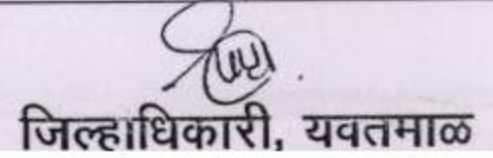 जिल्हाधिकारी, यवतमाळ